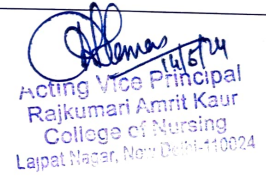 14/5/24
Acting Vice Principal
Rajkumari Amrit Kaur
College of Nursing
Lajpat Nagar, New Delhi-110024